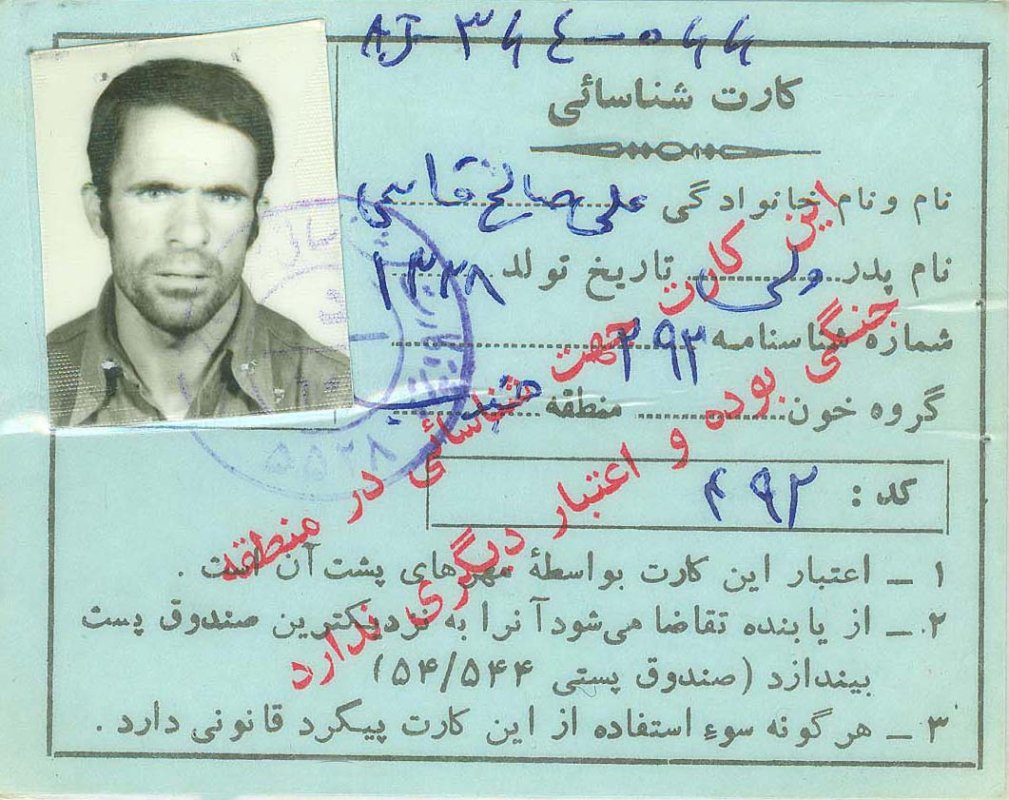 AJ-۳۴۴-۰۴۴
کارت شناسائی
نام و نام خانوادگی علی صالح قاسمی
نام پدر ولی تاریخ تولد ۱۳۲۸
شماره شناسنامه ۳۹۲
گروه خون منطقه
کد : ۴۹۲
۱ ــ اعتبار این کارت بواسطهٔ مهرهای پشت آن است .
۲ ــ از یابنده تقاضا می‌شود آنرا به نزدیکترین صندوق پست
بیندازد (صندوق پستی ۵۴/۵۴۴)
۳ ــ هر گونه سوء استفاده از این کارت پیگرد قانونی دارد .
این کارت جهت شناسائی در منطقه
جنگی بوده و اعتبار دیگری ندارد